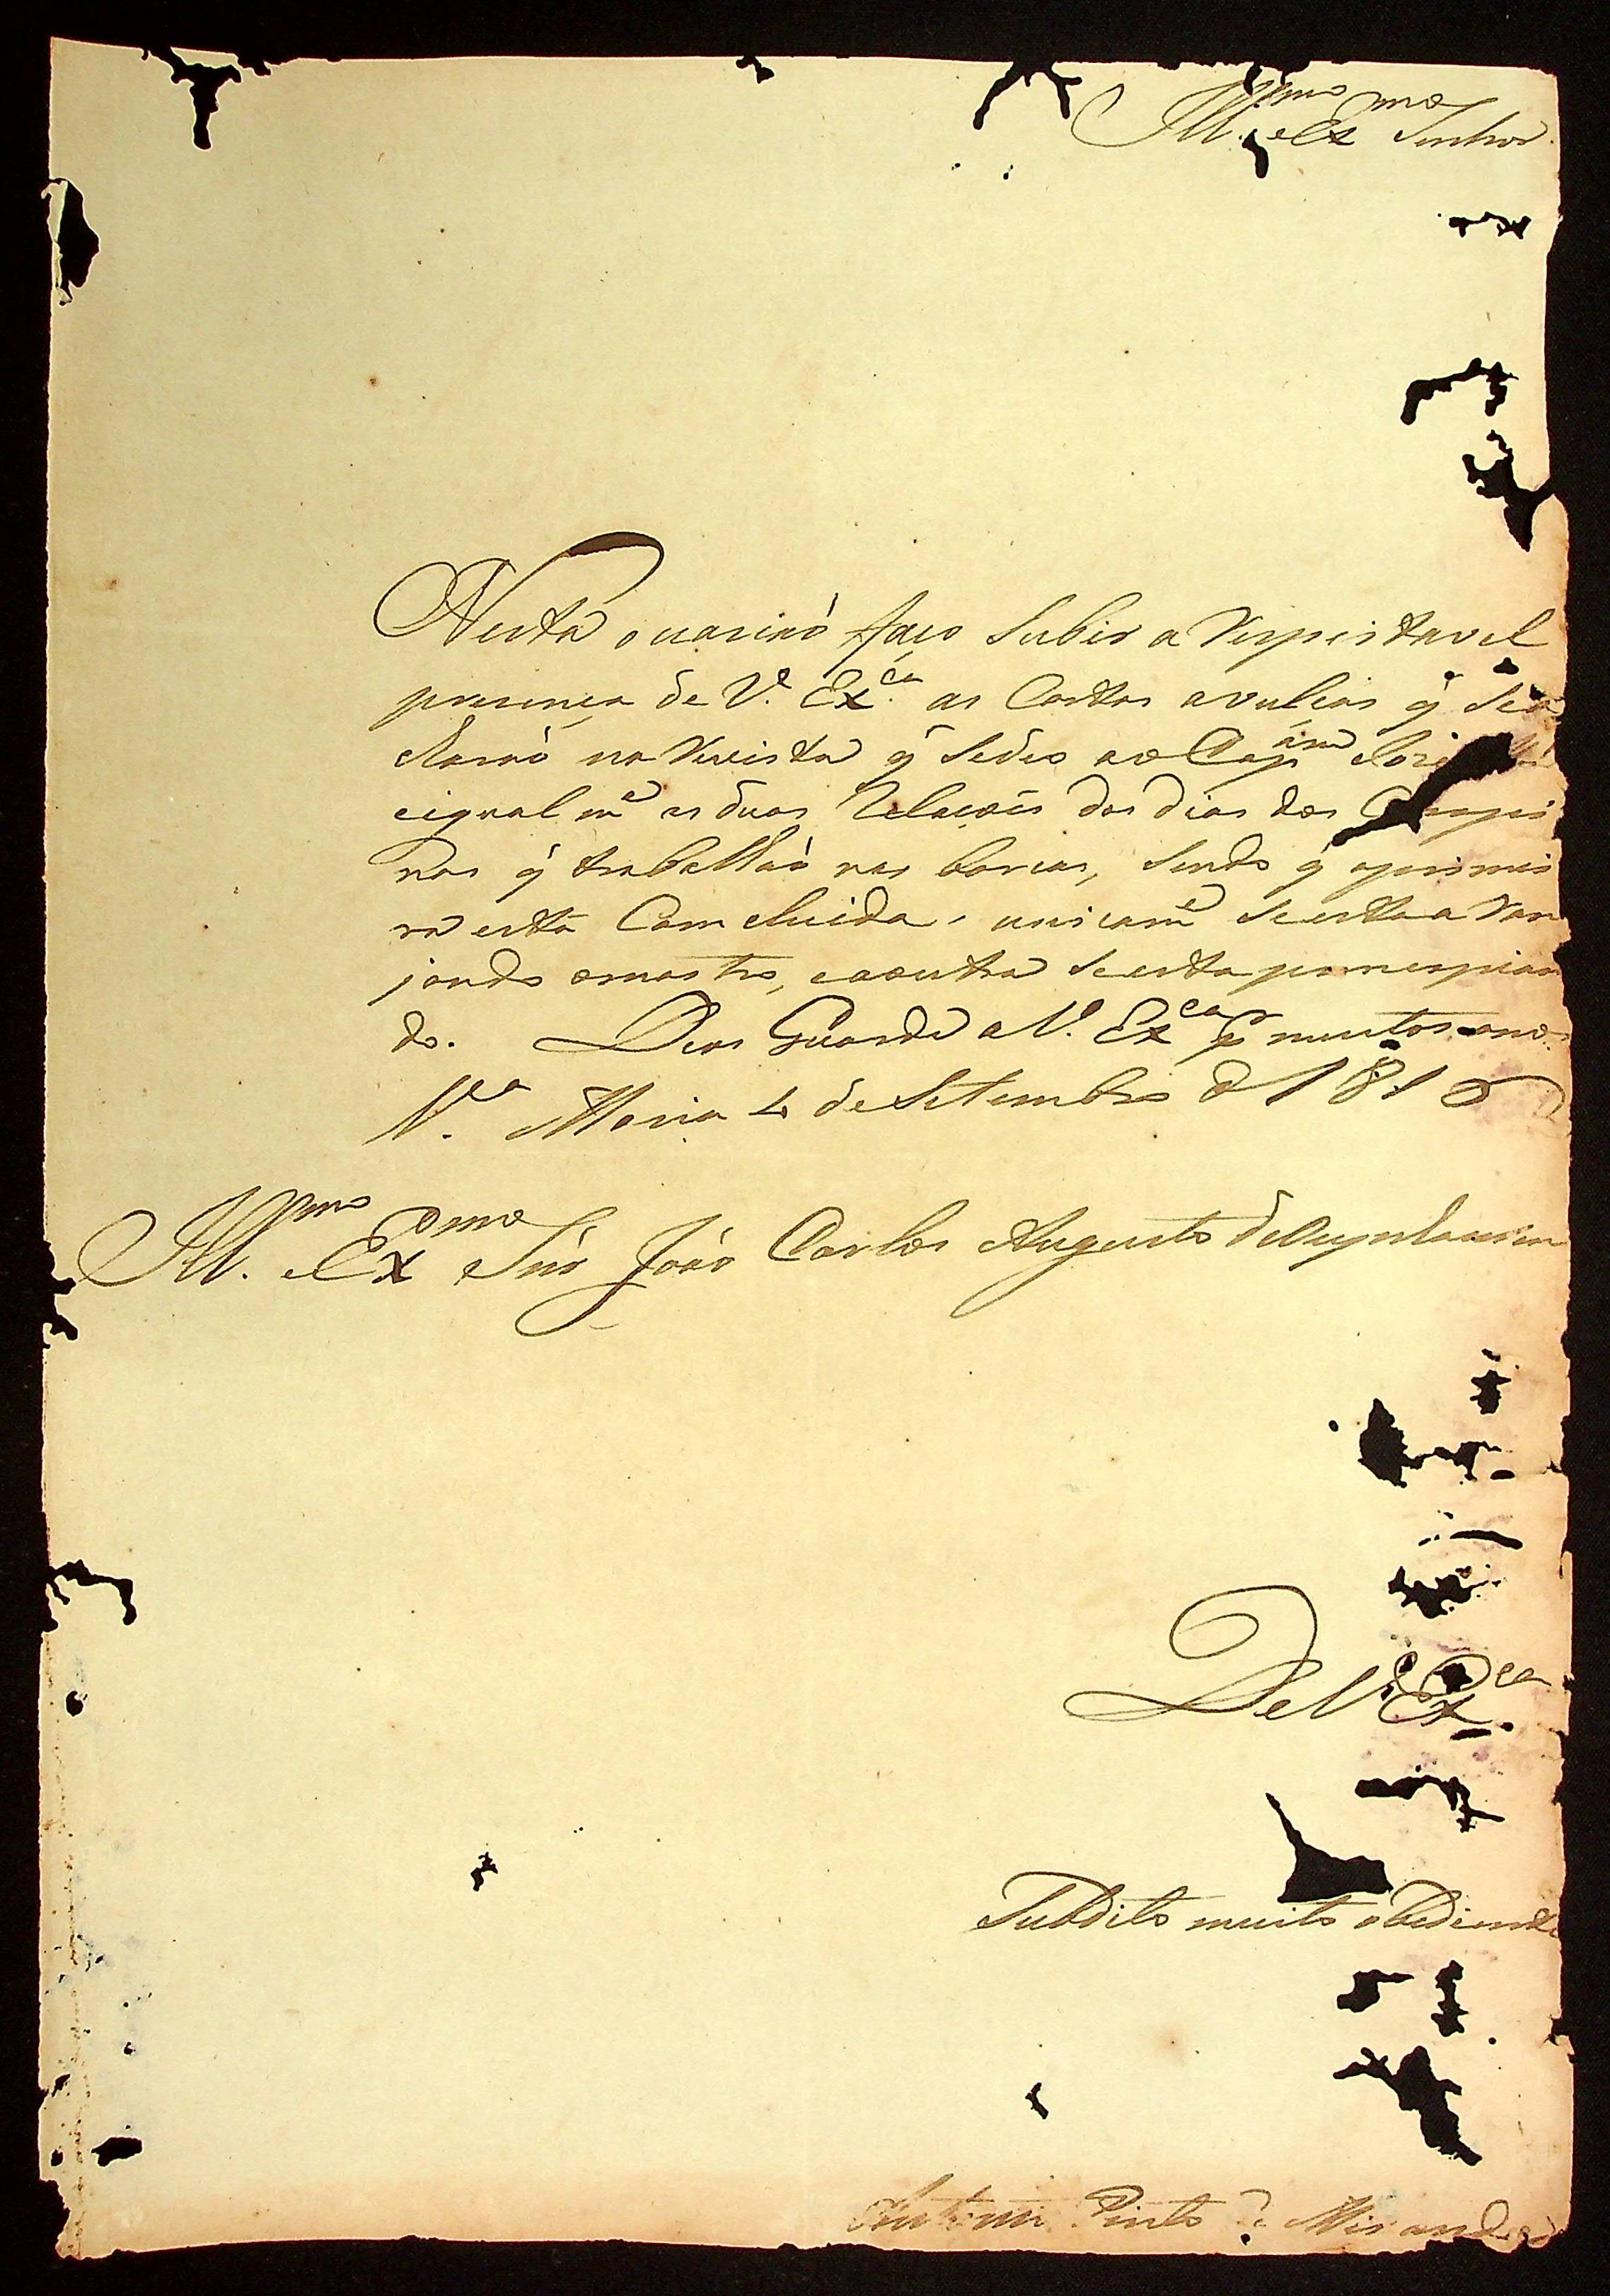 Ill.mo e Ex.mo Senhor
Nesta ocasiaó faço Subir a Respeitavel
presença de V.ª Ex.ca as Cartas avulças q̃ Se a
charaó na Revista q̃ Sedeo ao Cap.am
eigualm.e as duas Relaçoẽs dos dias dos
nas q̃ trabalhaó nas barcas, Sendo q̃ aprimei
ra está Comcluida, unicam.e Seesta a Ran
jando omastro, eaoutra Seesta primcipian
do. Deos Guarde a V.ª Ex.ca p.r muitos anos
V.ª Maria 4 de Setembro d 181
Ill.mo e Ex.mo Snr̃ Joaó Carlos Augusto de Oeynhausen
De V.ª Ex.ca
Subdito muito obediente
Antonio Pinto de Miranda